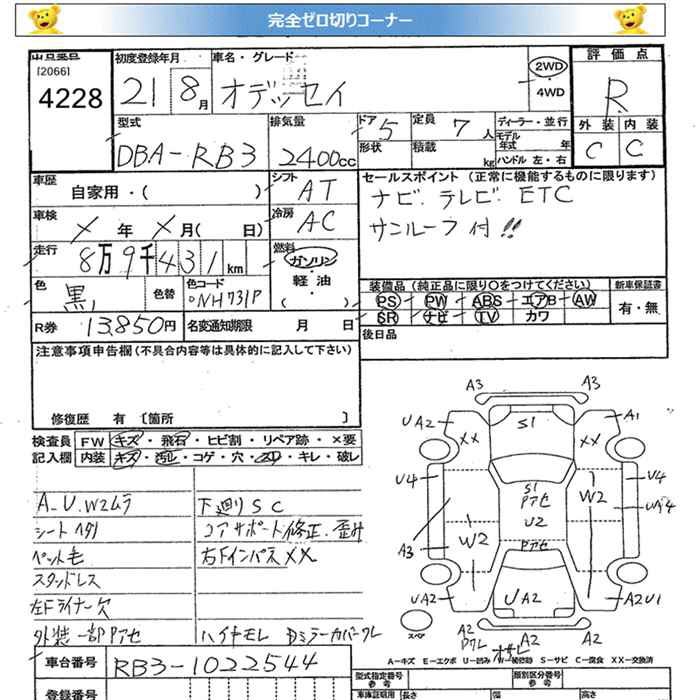 完全ゼロ切りコーナー
出品番号
[2066]
4228
初度登録年月
21 8月
車名・グレード
オデッセイ
2WD
・
4WD
評価点
R
外装 内装
C C
型式
DBA-RB3
排気量
2400cc
ドア 5
形状
定員 7人
積載 kg
ディーラー・並行
モデル年式 年
ハンドル 左・右
車歴
自家用・( )
シフト
AT
車検
× 年 × 月( 日)
冷房
AC
走行
8万9千431km
燃料
ガソリン
・
軽油
( )
色
黒
色替
色コード
NH731P
R券 13,850円
名変通知期限 月 日
セールスポイント(正常に機能するものに限ります)
ナビ. テレビ. ETC
サンルーフ付!!
装備品(純正品に限り○をつけてください)
PS PW ABS エアB AW
SR ナビ TV カワ
新車保証書
有・無
後日品
注意事項申告欄(不具合内容等は具体的に記入して下さい)
修復歴 有 [箇所 ]
検査員記入欄
FW キズ・飛石・ヒビ割・リペア跡・×要
内装 キズ・汚レ・コゲ・穴・スレ・キレ・破レ
A-U.W2ムラ
シートヘタリ
ペット毛
スタッドレス
左Fライナー欠
外装一部Pアセ
下廻りSC
コアサポート修正.歪み
右FインパネXX
ハイヤモレ
ミラーカバーワレ
車台番号 RB3-1022544
登録番号
A3 A3
UA2 XX S1 XX A1
U4 S1 U4
Pアセ W2
U2
A3 W2 Pアセ
UA2 UA2 A2U1
スペア
A2 Pワレ オサレ A2 A2
A-キズ E-エクボ U-凹み W-補修跡 S-サビ C-腐食 XX-交換済
型式指定番号
参考
類別区分番号
参考
車体証明用 長さ 幅 高さ